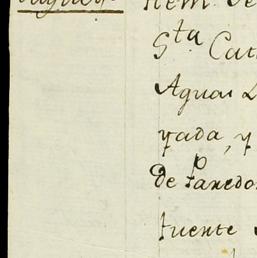 Item. de
Sta Cat
Aguas
yada, y
de Paredo
fuente